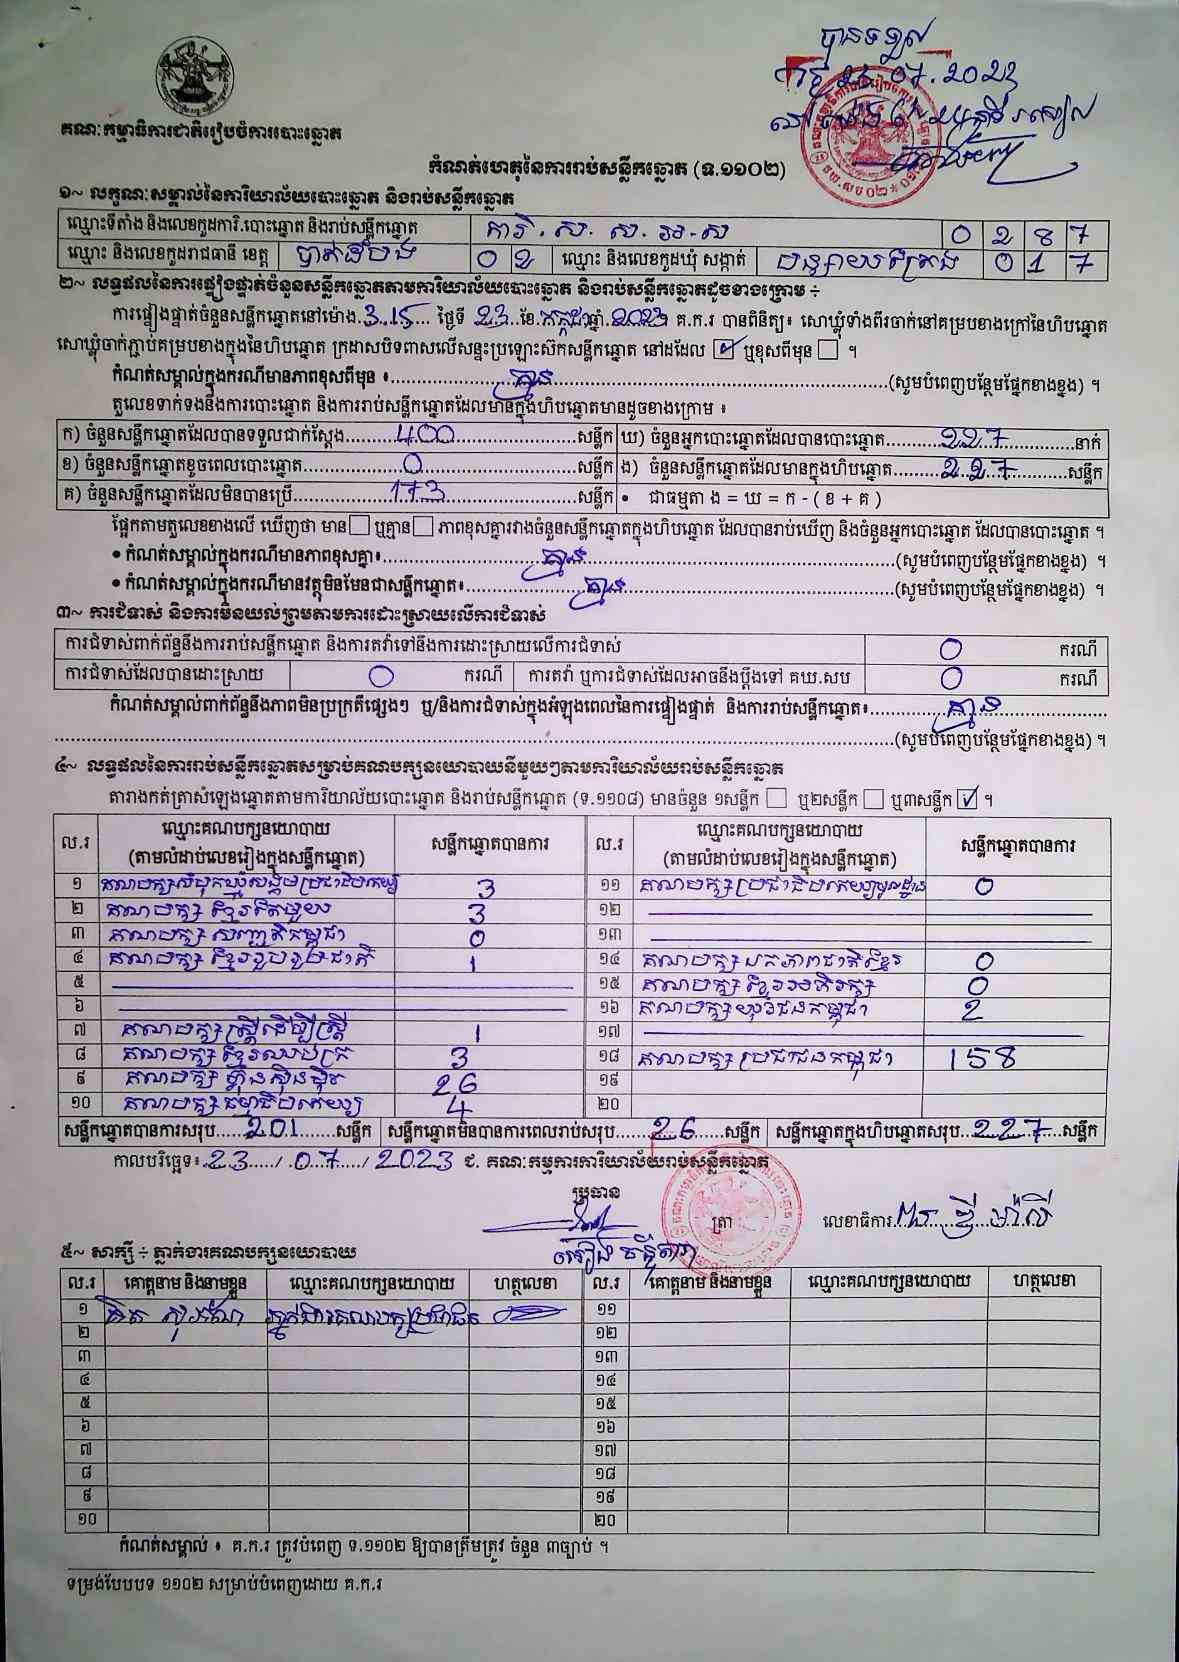 បានទទួល
២៣.០៧.2023
គណៈកម្មាធិការជាតិរៀបចំការបោះឆ្នោត
កំណត់ហេតុនៃការរាប់សន្លឹកឆ្នោត (ទ.១១០២)
១~ លក្ខណៈសម្គាល់នៃការិយាល័យបោះឆ្នោត និងរាប់សន្លឹកឆ្នោត
ឈ្មោះទីតាំង និងលេខកូដការិ.បោះឆ្នោត និងរាប់សន្លឹកឆ្នោត ការិ. ស. ស. អ. ស 0 2 8 7
ឈ្មោះ និងលេខកូដរាជធានី ខេត្ត បាត់ដំបង 0 2 ឈ្មោះ និងលេខកូដឃុំ សង្កាត់ បន្សាយត្រែង 0 1 7
២~ លទ្ធផលនៃការផ្ទៀងផ្ទាត់ចំនួនសន្លឹកឆ្នោតតាមការិយាល័យបោះឆ្នោត និងរាប់សន្លឹកឆ្នោតដូចខាងក្រោម ÷
ការផ្ទៀងផ្ទាត់ចំនួនសន្លឹកឆ្នោតនៅម៉ោង 3.15 ថ្ងៃទី 23 ខែ កក្កដា ឆ្នាំ 2023 គ.ក.រ បានពិនិត្យ៖ សោឃ្លុំទាំងពីរចាក់នៅគម្របខាងក្រៅនៃហិបឆ្នោត
សោឃ្លុំចាក់ភ្ជាប់គម្របខាងក្នុងនៃហិបឆ្នោត ក្រដាសបិទពាសលើសន្ទះប្រឡោះស៊កសន្លឹកឆ្នោត នៅដដែល ☑ ឬខុសពីមុន ☐ ។
កំណត់សម្គាល់ក្នុងករណីមានភាពខុសពីមុន ៖ គ្មាន (សូមបំពេញបន្ថែមផ្នែកខាងខ្នង) ។
តួលេខទាក់ទងនឹងការបោះឆ្នោត និងការរាប់សន្លឹកឆ្នោតដែលមានក្នុងហិបឆ្នោតមានដូចខាងក្រោម ៖
ក) ចំនួនសន្លឹកឆ្នោតដែលបានទទួលជាក់ស្តែង 400 សន្លឹក ឃ) ចំនួនអ្នកបោះឆ្នោតដែលបានបោះឆ្នោត 227 នាក់
ខ) ចំនួនសន្លឹកឆ្នោតខូចពេលបោះឆ្នោត 0 សន្លឹក ង) ចំនួនសន្លឹកឆ្នោតដែលមានក្នុងហិបឆ្នោត 227 សន្លឹក
គ) ចំនួនសន្លឹកឆ្នោតដែលមិនបានប្រើ 173 សន្លឹក • ជាធម្មតា ង = ឃ = ក - ( ខ + គ )
ផ្អែកតាមតួលេខខាងលើ ឃើញថា មាន ☐ ឬគ្មាន ☐ ភាពខុសគ្នារវាងចំនួនសន្លឹកឆ្នោតក្នុងហិបឆ្នោត ដែលបានរាប់ឃើញ និងចំនួនអ្នកបោះឆ្នោត ដែលបានបោះឆ្នោត ។
• កំណត់សម្គាល់ក្នុងករណីមានភាពខុសគ្នា៖ គ្មាន (សូមបំពេញបន្ថែមផ្នែកខាងខ្នង) ។
• កំណត់សម្គាល់ក្នុងករណីមានវត្ថុមិនមែនជាសន្លឹកឆ្នោត៖ គ្មាន (សូមបំពេញបន្ថែមផ្នែកខាងខ្នង) ។
៣~ ការជំទាស់ និងការមិនយល់ព្រមតាមការដោះស្រាយលើការជំទាស់
ការជំទាស់ពាក់ព័ន្ធនឹងការរាប់សន្លឹកឆ្នោត និងការតវ៉ាទៅនឹងការដោះស្រាយលើការជំទាស់ 0 ករណី
ការជំទាស់ដែលបានដោះស្រាយ 0 ករណី ការតវ៉ា ឬការជំទាស់ដែលអាចនឹងប្តឹងទៅ គឃ.សប 0 ករណី
កំណត់សម្គាល់ពាក់ព័ន្ធនឹងភាពមិនប្រក្រតីផ្សេងៗ ឬ/និងការជំទាស់ក្នុងអំឡុងពេលនៃការផ្ទៀងផ្ទាត់ និងការរាប់សន្លឹកឆ្នោត៖ គ្មាន
(សូមបំពេញបន្ថែមផ្នែកខាងខ្នង) ។
៤~ លទ្ធផលនៃការរាប់សន្លឹកឆ្នោតសម្រាប់គណបក្សនយោបាយនីមួយៗតាមការិយាល័យរាប់សន្លឹកឆ្នោត
តារាងកត់ត្រាសំឡេងឆ្នោតតាមការិយាល័យបោះឆ្នោត និងរាប់សន្លឹកឆ្នោត (ទ.១១០៨) មានចំនួន ១សន្លឹក ☐ ឬ២សន្លឹក ☐ ឬ៣សន្លឹក ☑ ។
ល.រ ឈ្មោះគណបក្សនយោបាយ (តាមលំដាប់លេខរៀងក្នុងសន្លឹកឆ្នោត) សន្លឹកឆ្នោតបានការ ល.រ ឈ្មោះគណបក្សនយោបាយ (តាមលំដាប់លេខរៀងក្នុងសន្លឹកឆ្នោត) សន្លឹកឆ្នោតបានការ
១ គណបក្សសំបុកឃ្មុំសង្គមប្រជាធិបតេយ្យ 3 ១១ គណបក្សប្រជាធិបតេយ្យមូលដ្ឋាន 0
២ គណបក្ស ខ្មែរតែមួយ 3 ១២
៣ គណបក្ស សញ្ជាតិកម្ពុជា 0 ១៣
៤ គណបក្ស ខ្មែររួបរួមជាតិ 1 ១៤ គណបក្សឯកភាពជាតិខ្មែរ 0
៥ ១៥ គណបក្ស ខ្មែរអភិរក្ស 0
៦ ១៦ គណបក្សយុវជនកម្ពុជា 2
៧ គណបក្សស្ត្រីដើម្បីស្ត្រី 1 ១៧
៨ គណបក្សខ្មែរឈប់ក្រ 3 ១៨ គណបក្សប្រជាជនកម្ពុជា 158
៩ គណបក្ស ហ្វ៊ុនស៊ិនប៉ិច 26 ១៩
១០ គណបក្សធម្មាធិបតេយ្យ 4 ២០
សន្លឹកឆ្នោតបានការសរុប 201 សន្លឹក សន្លឹកឆ្នោតមិនបានការពេលរាប់សរុប 26 សន្លឹក សន្លឹកឆ្នោតក្នុងហិបឆ្នោតសរុប 227 សន្លឹក
កាលបរិច្ឆេទ៖ 23 / 07 / 2023 ជ. គណៈកម្មការការិយាល័យរាប់សន្លឹកឆ្នោត
ប្រធាន
ត្រា លេខាធិការ
៥~ សាក្សី ÷ ភ្នាក់ងារគណបក្សនយោបាយ
ល.រ គោត្តនាម និងនាមខ្លួន ឈ្មោះគណបក្សនយោបាយ ហត្ថលេខា ល.រ គោត្តនាម និងនាមខ្លួន ឈ្មោះគណបក្សនយោបាយ ហត្ថលេខា
១ ១១
២ ១២
៣ ១៣
៤ ១៤
៥ ១៥
៦ ១៦
៧ ១៧
៨ ១៨
៩ ១៩
១០ ២០
កំណត់សម្គាល់ ៖ គ.ក.រ ត្រូវបំពេញ ទ.១១០២ ឱ្យបានត្រឹមត្រូវ ចំនួន ៣ច្បាប់ ។
ទម្រង់បែបបទ ១១០២ សម្រាប់បំពេញដោយ គ.ក.រ